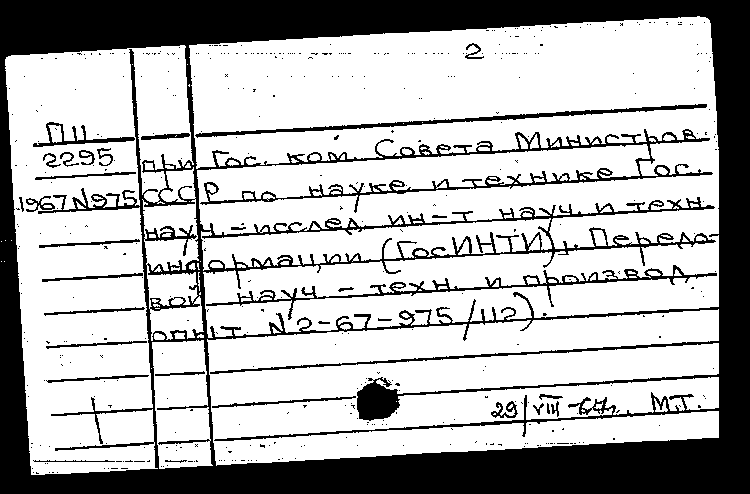 2
П 11
2295 при Гос. ком. Совета Министров
1967 N975 СССР по науке и технике. Гос.
науч.-исслед. ин-т науч. и техн.
информации (ГосИНТИ), Передо-
вой науч-техн. и производ.
опыт. N2-67-975/112).
29/VIII-67г. М.Т.